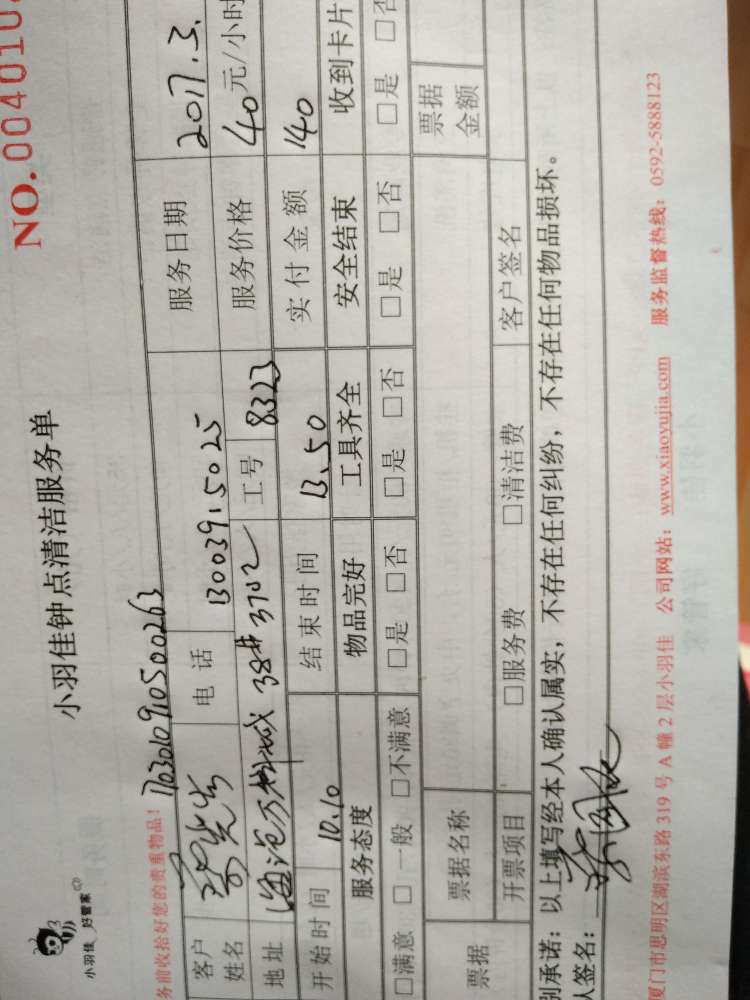 小羽佳 好管家
小羽佳钟点清洁服务单
NO.004010
务前收拾好您的贵重物品!
1703010910500263
客户姓名 蔡先生 电话 13003915025 服务日期 2017.3.
地址 海沧万科城 38# 3702 工号 8323 服务价格 40元/小时
开始时间 10.10 结束时间 13.50 实付金额 140
服务态度 物品完好 工具齐全 安全结束 收到卡片
□满意 □一般 □不满意 □是 □否 □是 □否 □是 □否 □是 □否
票据 票据名称 票据金额
开票项目 □服务费 □清洁费 客户签名
别承诺:以上填写经本人确认属实,不存在任何纠纷,不存在任何物品损坏。
人签名:
厦门市思明区湖滨东路 319 号 A 幢 2 层小羽佳 公司网站:www.xiaoyujia.com 服务监督热线:0592-5888123